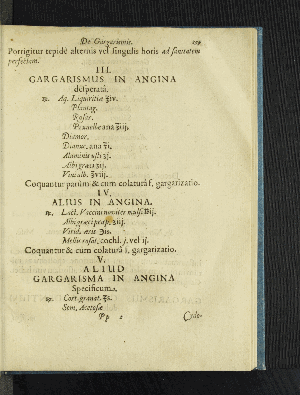 De Gargarismis.
Porrigitur tepidè alternis vel singulis horis ad sanitatem
perfectam.
III.
GARGARISMUS IN ANGINA
desperatâ.
℞. Aq. Liquiritiæ ℥iv.
Plantag.
Rosar.
Prunellæ ana ℥iij.
Diamor.
Dianuc. ana ℥j.
Aluminis usti ʒj.
Albi græci ʒij.
Vini alb. ℥vij.
Coquantur parùm & cum colaturâ f. gargarizatio.
IV.
ALIUS IN ANGINA.
℞. Lact. Vaccini
Albi græci præp. ʒiij.
Virid. æris
Mellis rosat. cochl. j. vel ij.
Coquantur & cum colaturâ f. gargarizatio.
V.
ALIUD
GARGARISMA IN ANGINA
Specificum.
℞. Cort. granat.
Sem. Acetosæ
Pp 2